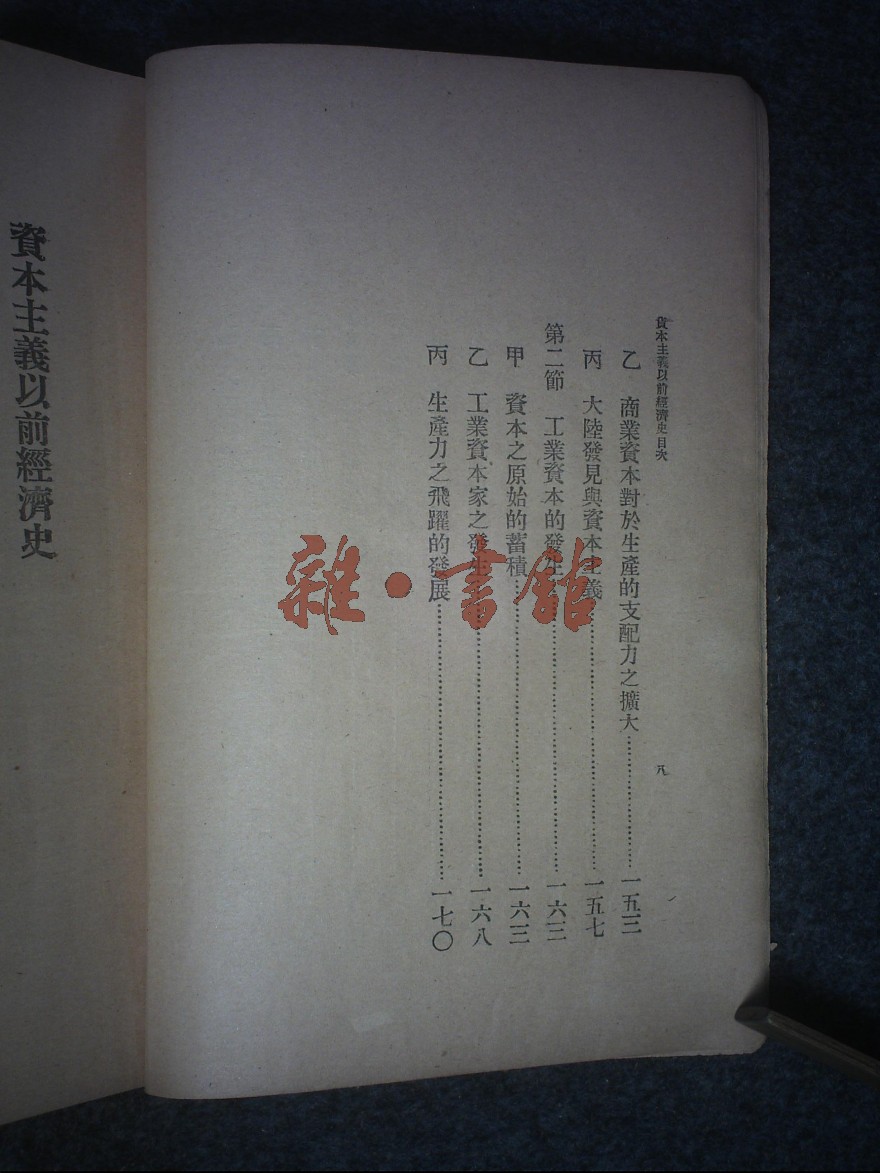 資本主義以前經濟史目次
八
乙 商業資本對於生產的支配力之擴大……………一五三
丙 大陸發見與資本主義……………一五七
第二節 工業資本的發生……………一六三
甲 資本之原始的蓄積……………一六三
乙 工業資本家之發生……………一六八
丙 生產力之飛躍的發展……………一七〇
資本主義以前經濟史
雜·書館